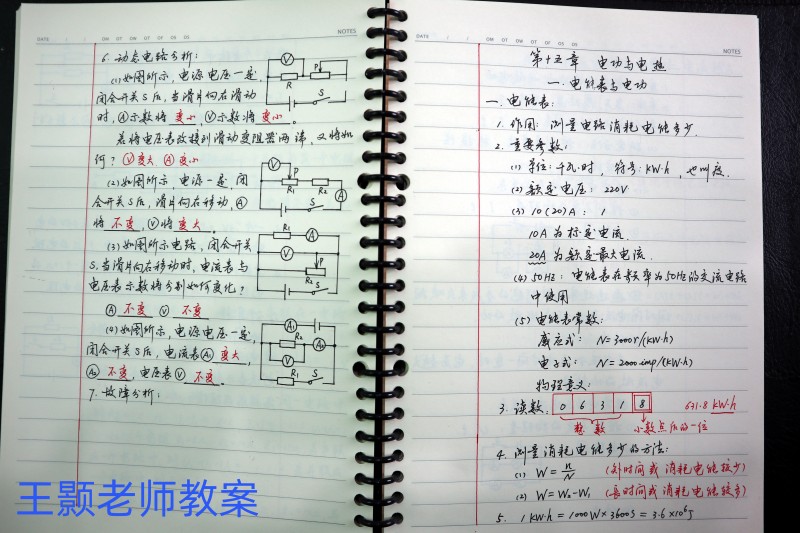 DATE / / OM OT OW OT OF OS OS
NOTES
6. 动态电路分析:
(1) 如图所示, 电源电压一定,
闭合开关S后, 当滑片向右滑动
时, Ⓐ示数将 变小, Ⓥ示数将变小。
若将电压表改接到滑动变阻器两端, 又将如
何? Ⓥ变大 Ⓐ变小
(2) 如图所示, 电源一定, 闭
合开关S后, 滑片向右移动, Ⓐ
将 不变, Ⓥ将 变大。
(3) 如图所示电路, 闭合开关
S, 当滑片向右移动时, 电流表与
电压表示数将分别如何变化?
Ⓐ 不变 Ⓥ 不变
(4) 如图所示, 电源电压一定,
闭合开关S后, 电流表A₁ 变大,
A₂ 不变, 电压表Ⓥ 不变。
7. 故障分析:
V
R
P
S
V
P
R₁
R₂
A
S
R₁
A
V
P
R₂
S
A₁
R₂
A₂
V
R₁
S
王颢老师教案
DATE / / OM OT OW OT OF OS OS
NOTES
第十五章 电功与电热
一. 电能表与电功
一. 电能表:
1. 作用: 测量电路消耗电能多少.
2. 重要参数:
(1) 单位: 千瓦·时, 符号: KW·h, 也叫度.
(2) 额定电压: 220V
(3) 10(20)A:
10A为标定电流.
20A为额定最大电流.
(4) 50Hz: 电能表在频率为50Hz的交流电路
中使用
(5) 电能表常数:
感应式: N=3000r/(KW·h)
电子式: N=2000imp/(KW·h)
物理意义:
3. 读数. 0 6 3 1 8 631.8 KW·h
整数 小数点后的一位
4. 测量消耗电能多少的方法:
(1) W = n/N (短时间或消耗电能较少)
(2) W = W₂-W₁ (长时间或消耗电能较多)
5. 1KW·h = 1000W×3600S = 3.6×10⁶J